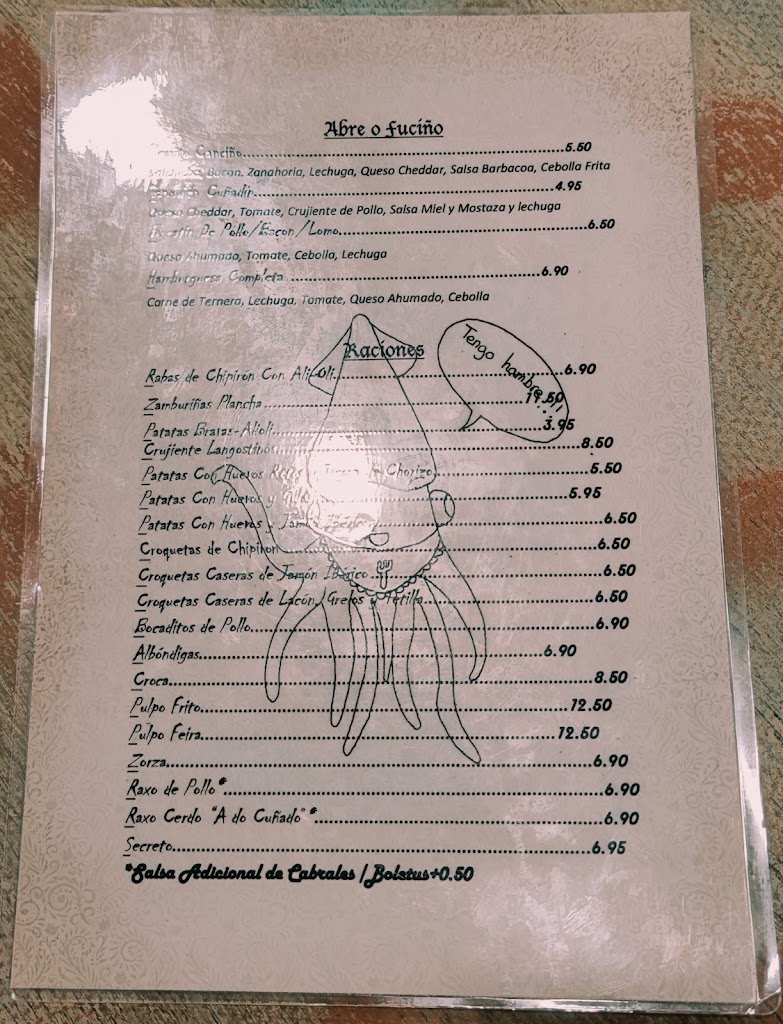 Abre o Fuciño
Canciño.....5.50
Bacon, Zanahoria, Lechuga, Queso Cheddar, Salsa Barbacoa, Cebolla Frita
Cuñadín.....4.95
Queso Cheddar, Tomate, Crujiente de Pollo, Salsa Miel y Mostaza y lechuga
De Pollo/Bacon/Lomo.....6.50
Queso Ahumado, Tomate, Cebolla, Lechuga
Hamburguesa Completa.....6.90
Carne de Ternera, Lechuga, Tomate, Queso Ahumado, Cebolla
Raciones
Tengo hambre...!!
Rabas de Chipirón Con Ali-Oli.....6.90
Zamburiñas Plancha.....11.50
Patatas Bravas-Alioli.....3.95
Crujiente Langostinos.....8.50
Patatas Con Huevos Rotos y de Chorizo.....5.50
Patatas Con Huevos y.....5.95
Patatas Con Huevos y Jamón Ibérico.....6.50
Croquetas de Chipiron.....6.50
Croquetas Caseras de Jamón Ibérico.....6.50
Croquetas Caseras de Lacón, Grelos y Tetilla.....6.50
Bocaditos de Pollo.....6.90
Albóndigas.....6.90
Croca.....8.50
Pulpo Frito.....12.50
Pulpo Feira.....12.50
Zorza.....6.90
Raxo de Pollo*.....6.90
Raxo Cerdo "A do Cuñado"*.....6.90
Secreto.....6.95
*Salsa Adicional de Cabrales /Boletus+0.50